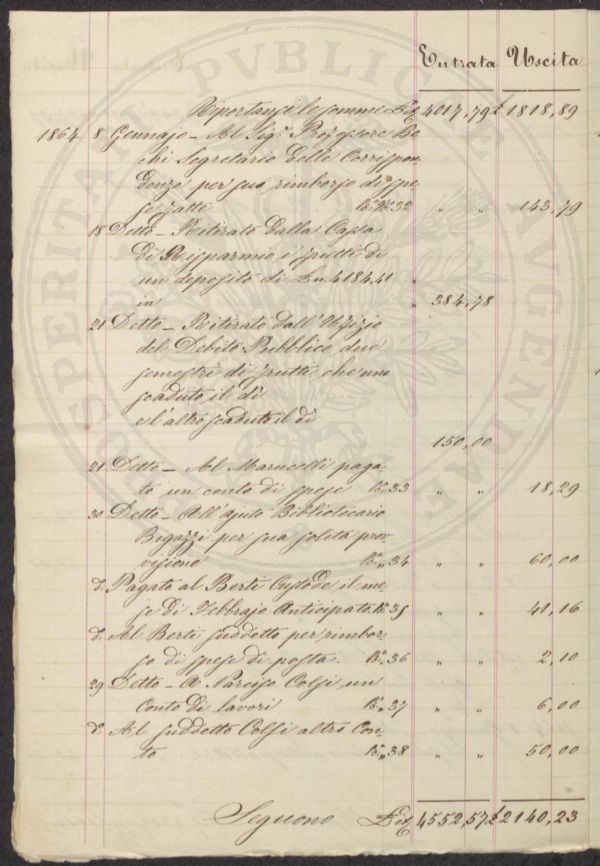 Entrata Uscita
Riportansi le somme Lit 4017,79 £ 1818,89
1864 8 Gennajo – Al Sig.r Professore Be
chi Segretario delle Corrispon
denze per suo rimborso di spe
se fatte N.° 32 " " 143,79
18 Detto – Ritirato dalla Cassa
di Risparmio i frutti di
un deposito di Ln. 4184,41
in " 384,78
21 Detto – Ritirato dall'Ufizio
del Debito Pubblico due
semestri di frutti che uno
scaduto il dì
e l'altro scaduto il dì
150,00
21 Detto – Al Marucelli paga-
to un conto di spese 33 " " 18,29
30 Detto – All'ajuto Bibliotecario
Bigazzi per sua solita prov-
visione 34 " " 60,00
d.° Pagato al Berti Custode il me-
se di Febbrajo Anticipato 35 " " 41,16
d.° Al Berti suddetto per rimbor-
so di spese di posta. 36 " " 2,10
29 Detto – A Narciso Colsi un
Conto di lavori 37 " " 6,00
d.° Al suddetto Colsi altro Con-
to 38 " " 50,00
Seguono Lit 4552,57 £ 2140,23
PROSPERITATI PVBLICAE AVGENDAE